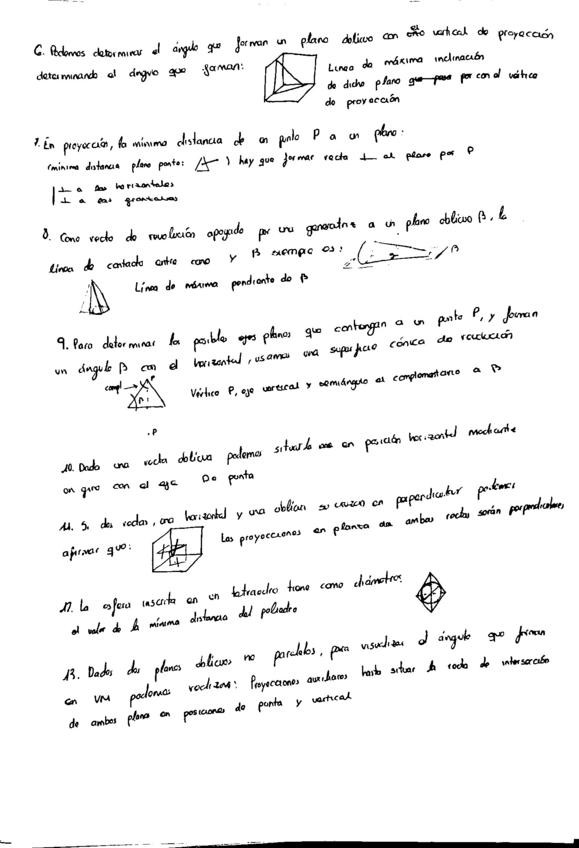 6. Podemos determinar el ángulo que forman un plano oblicuo con el vertical de proyección
determinando el ángulo que forman:
Linea de máxima inclinación
de dicho plano por con el vértice
de proyacción
7. En proyección, la mínima distancia de un punto P a un plano:
(mínima distancia plano punto: ) hay que formar recta ⊥ al plano por P
⊥ a las horizontales
⊥ a las
8. Cono recto de revolución apoyado por una generatriz a un plano oblicuo β, la
línea de contacto entre cono y β siempre es:
β
Línea de máxima pendiente de β
9. Para determinar los posibles planos que contengan a un punto P, y forman
un ángulo β con el horizontal, usamos una superficie cónica de revolución
compl → P
β
Vértice P, eje vertical y semiángulo el complementario a β
. P
10. Dada una recta oblicua podemos situarla en posición horizontal mediante
un giro con el eje De punta
11. Si dos rectas, una horizontal y una oblicua se cruzan en perpendicular podemos
afirmar que:
Las proyecciones en planta de ambas rectas serán perpendiculares
12. La esfera inscrita en un tetraedro tiene como diámetro:
el valor de la mínima distancia del poliedro
13. Dados dos planos oblicuos no paralelos, para visualizar el ángulo que forman
en VM podemos realizar: Proyecciones auxiliares hasta situar la recta de intersección
de ambos planos en posiciones de punta y vertical